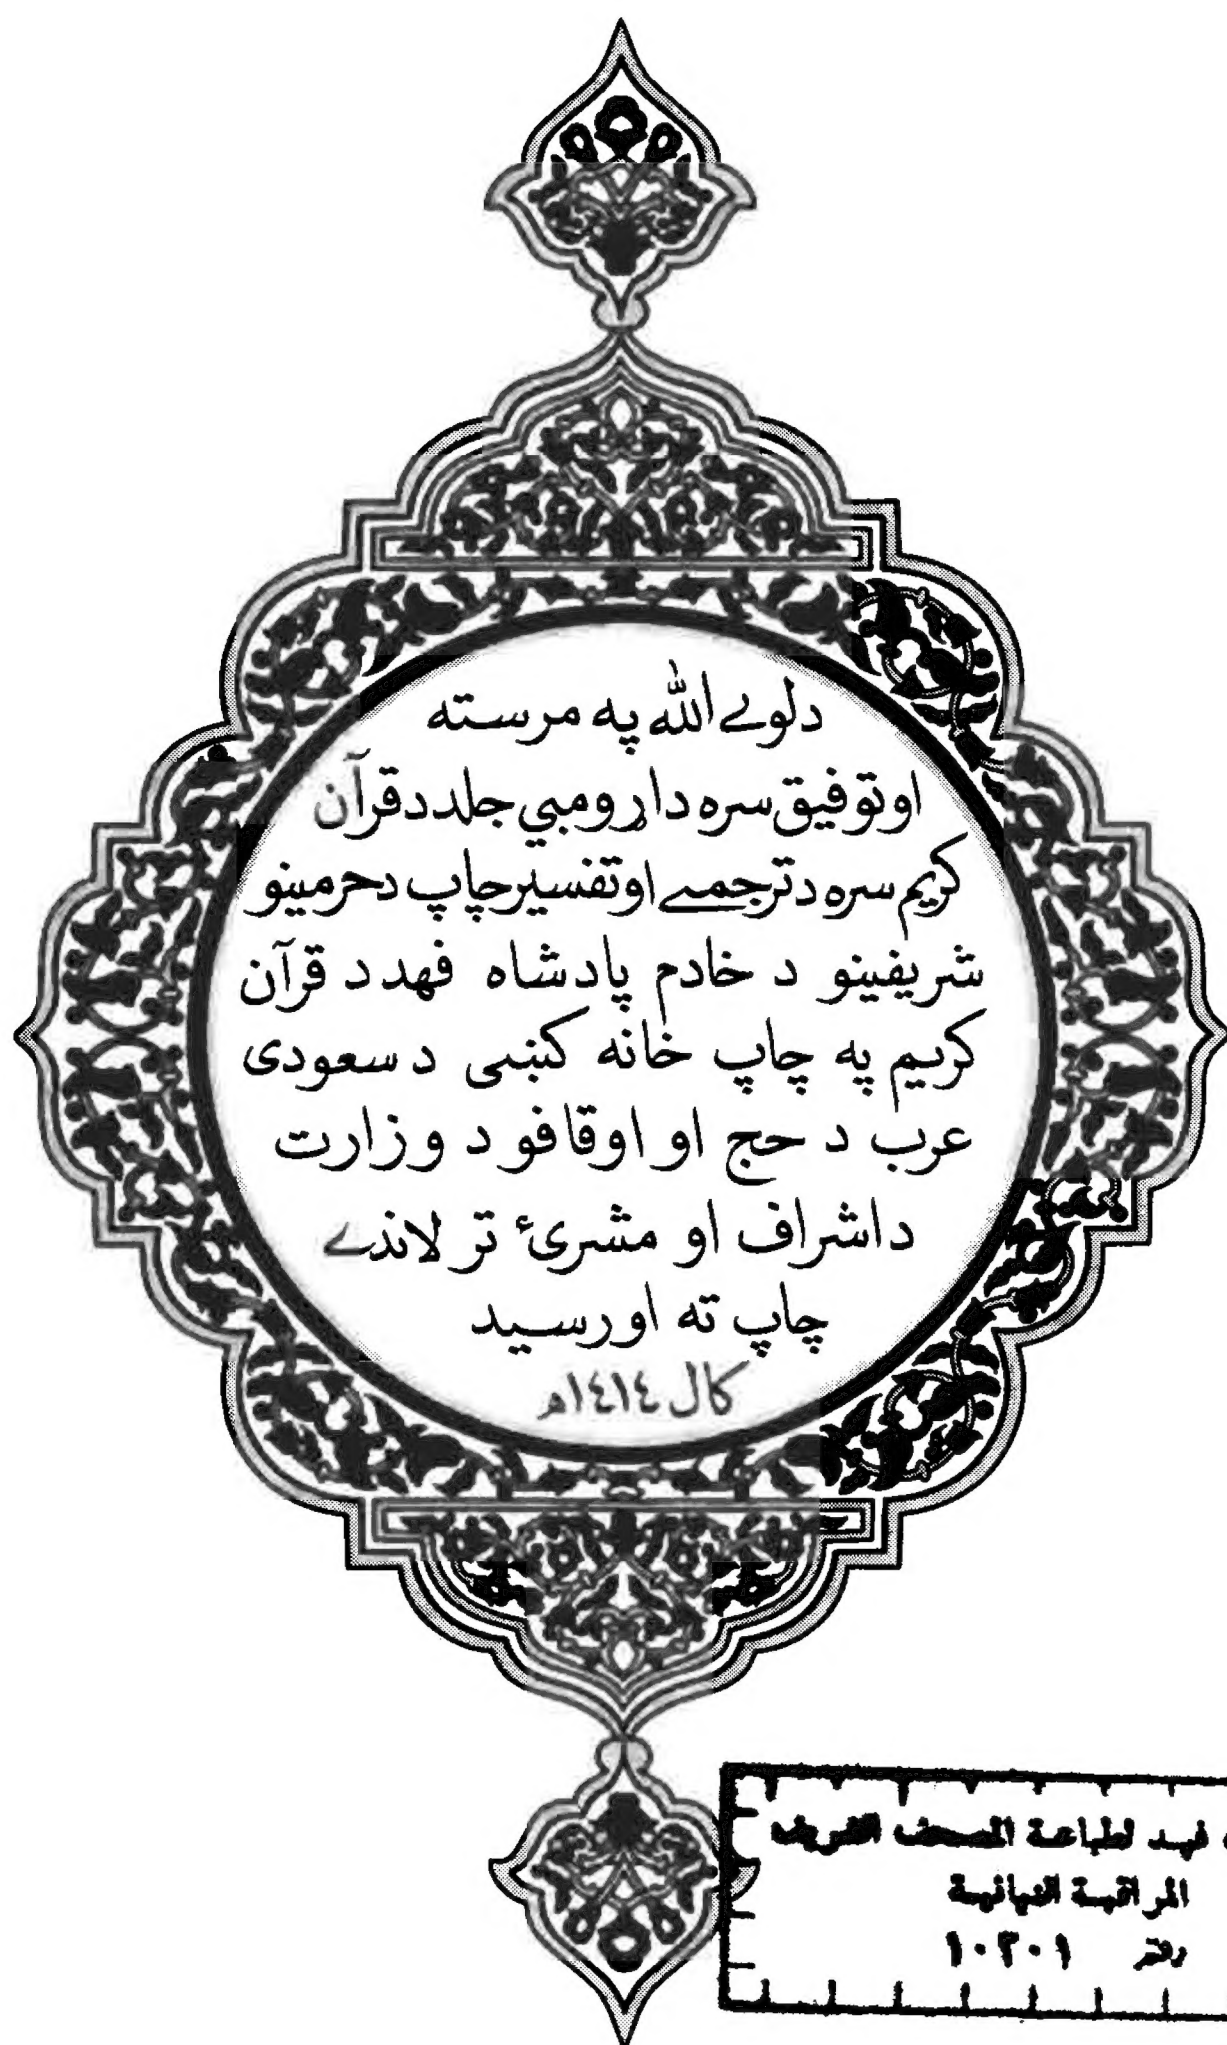 دلوے الله په مرسته
اوتوفیق سره دا ړومبي جلد دقرآن
کریم سره دترجمے اوتفسیر چاپ دحرمینو
شریفینو د خادم پادشاه فهد د قرآن
کریم په چاپ خانه کښی د سعودی
عرب د حج او اوقافو د وزارت
داشراف او مشرئ تر لاندے
چاپ ته اورسید
کال ١٤١٤ه
فهد لطباعة المصحف الشريف
المراقبة النهائية
رقم ١٠٣٠١